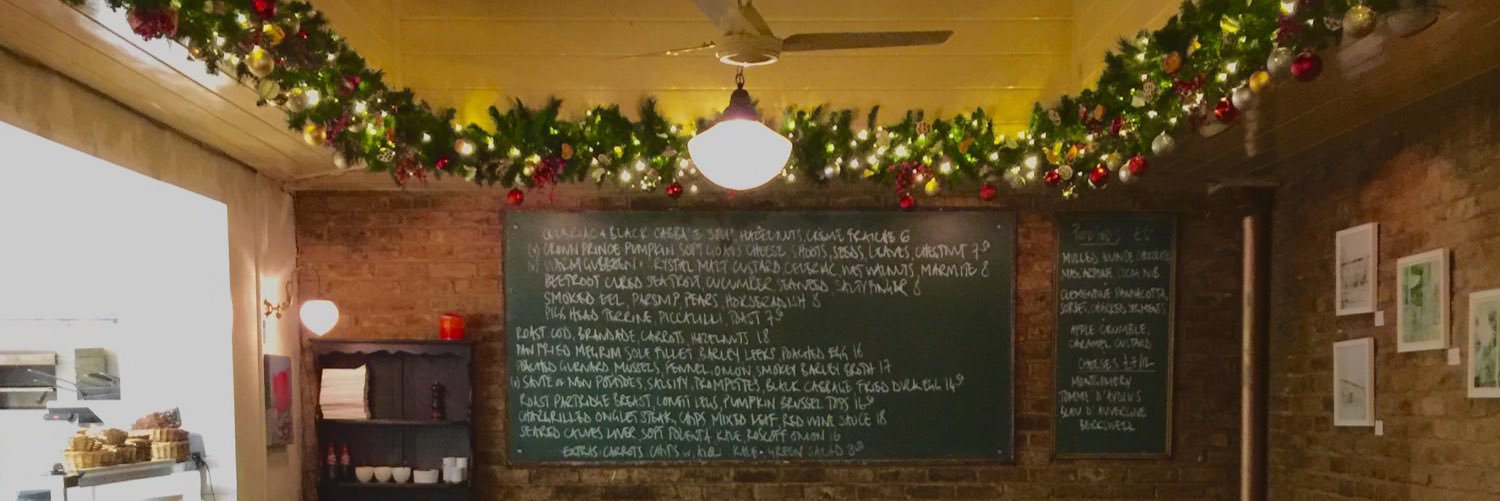 CELERIAC & BLACK CABBAGE SOUP, HAZELNUTS, CREME FRAICHE 6
(V) CROWN PRINCE PUMPKIN SOFT GOATS CHEESE SHOOTS, SEEDS, LEAVES, CHESTNUT 7.50
CRYSTAL MALT CUSTARD, CELERIAC, WET WALNUTS, MARMITE 8
BEETROOT CURED SEATROUT, CUCUMBER, SEAWEED 8
SMOKED EEL, PARSNIP, PEARS, HORSERADISH 8
PIGS HEAD TERRINE, PICCALILLI, TOAST 7.50
ROAST COD, BRANDADE, CARROTS, HAZELNUTS 18
PAN FRIED MEGRIM SOLE FILLET, BARLEY LEEKS POACHED EGG 16
POACHED GURNARD MUSSELS, FENNEL, ONION SMOKEY BARLEY BROTH 17
(V) SAUTE OF NEW POTATOES, SALSIFY, TROMPETTES BLACK CABBAGE FRIED DUCK EGG 14.50
ROAST PARTRIDGE BREAST, CONFIT LEGS, PUMPKIN BRUSSEL TOPS 16.50
CHARGRILLED ONGLET STEAK, CHIPS MIXED LEAF, RED WINE SAUCE 18
SEARED CALVES LIVER, SOFT POLENTA KALE ROSCOFF ONION 16
EXTRAS: CARROTS CHIPS W. AIOLI KALE • GREEN SALAD 3.50
PUDDINGS £6
MULLED QUINCE CHOCOLATE
MASCARPONE COCOA NIB
CLEMENTINE PANNACOTTA,
SORBET, CHARRED SEGMENTS
APPLE CRUMBLE,
CARAMEL CUSTARD
CHEESES £7/12
MONTGOMERY
TOMME D'
BLEU D'AUVERGNE
BERKSWELL